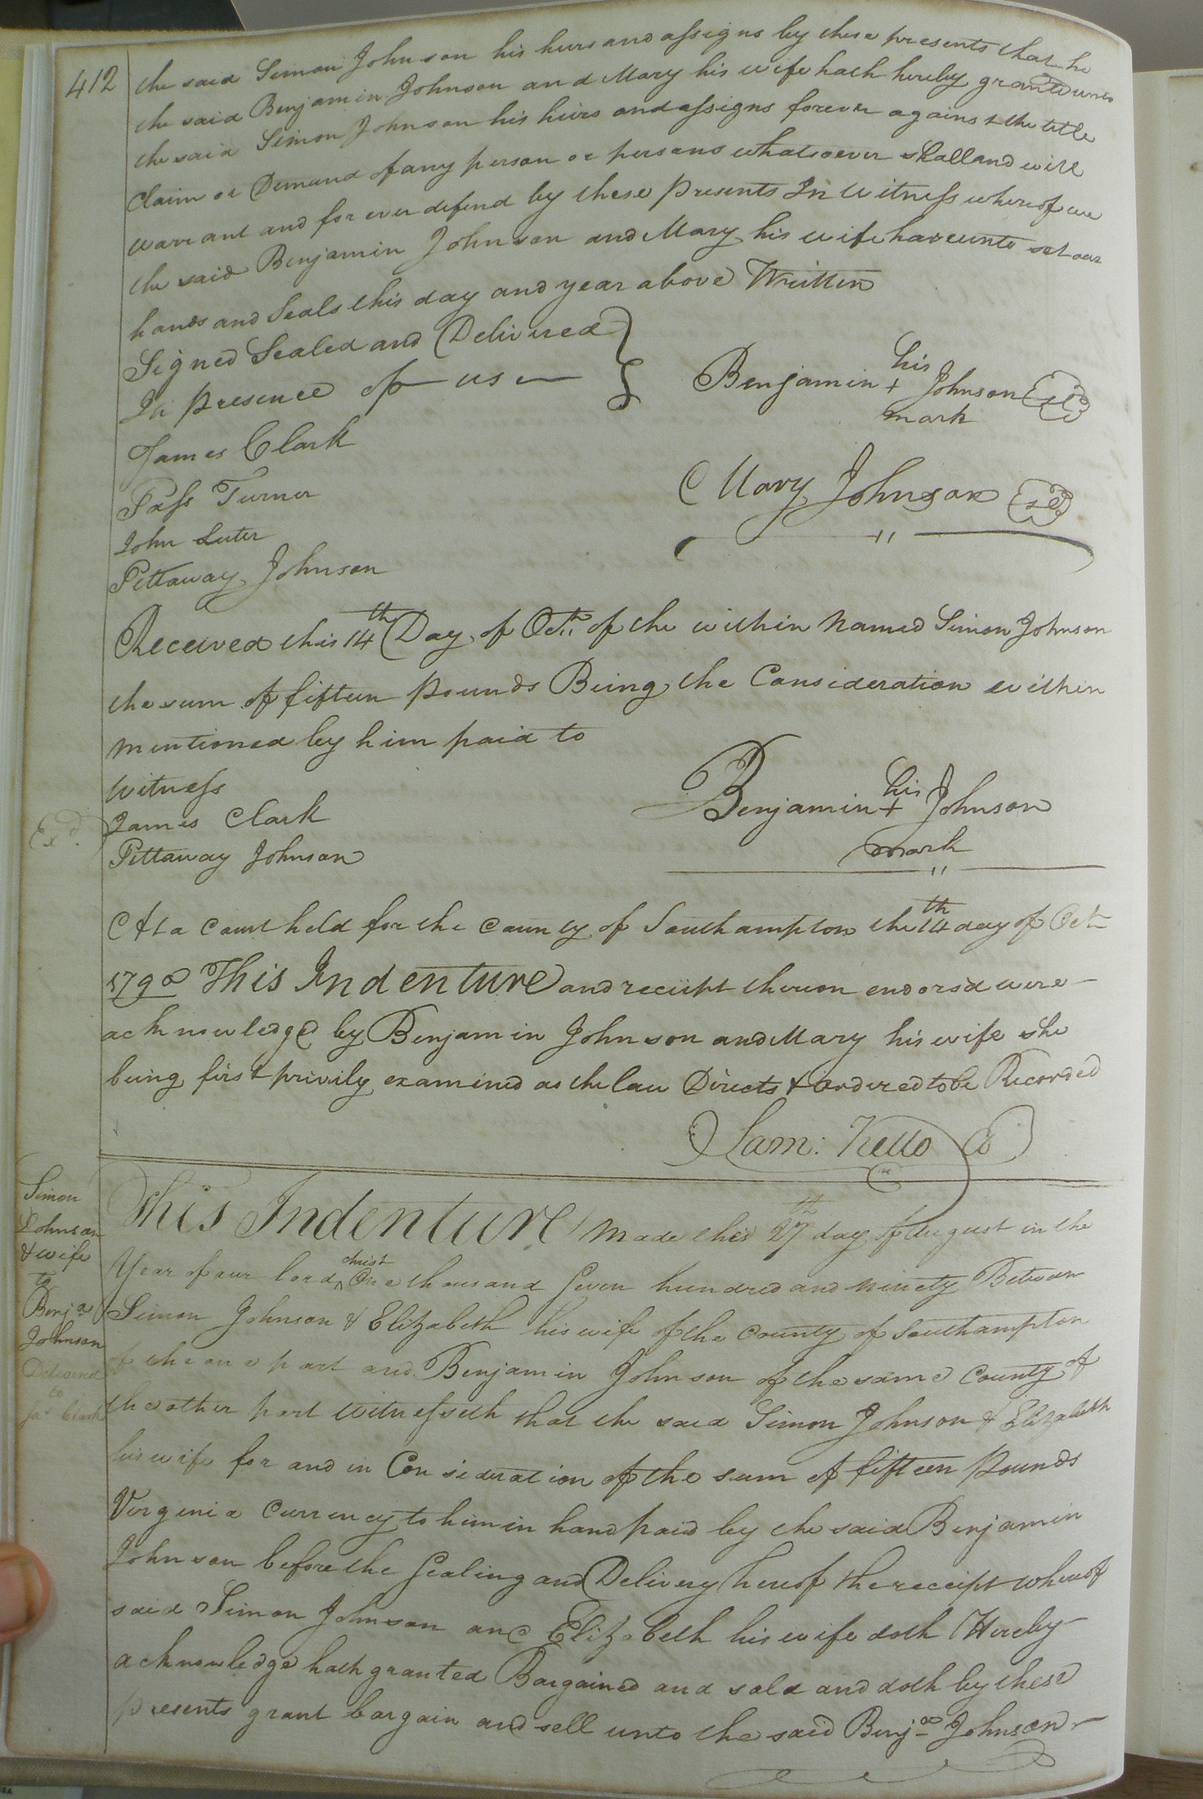 412
the said Simon Johnson his heirs and assigns by these presents that he
the said Benjamin Johnson and Mary his wife hath hereby granted unto
the said Simon Johnson his heirs and assigns forever against the title
Claim or Demand of any person or persons whatsoever shall and will
warrant and for ever defend by these presents In Witness whereof we
the said Benjamin Johnson and Mary his wife have unto set our
hands and Seals this day and year above Written
Signed Sealed and Delivered
In presence of us
James Clark
Pass Turner
John Luter
Pittaway Johnson
his
Benjamin + Johnson
mark
Mary Johnson
Received this 14th Day of Octr. of the within Named Simon Johnson
the sum of fifteen Pounds Being the Consideration within
mentioned by him paid to
Witness
James Clark
Pittaway Johnson
his
Benjamin + Johnson
mark
Exd.
At a Court held for the County of Southampton the 14th day of Octr
1790 This Indenture and receipt thereon endorsd were
acknowledged by Benjamin Johnson and Mary his wife she
being first privily examined as the law Directs & Ordered to be Recorded
Sam: Kello
Simon
Johnson
& wife
to
Benja
Johnson
Delivered
to
Jas Clark
This Indenture Made this 27th day of August in the
Year of our lord christ One thousand Seven hundred and ninety Between
Simon Johnson & Elizabeth his wife of the County of Southampton
of the one part and Benjamin Johnson of the same County of
the other part Witnesseth that the said Simon Johnson & Elizabeth
his wife for and in Consideration of the sum of fifteen Pounds
Virginia Currency to him in hand paid by the said Benjamin
Johnson before the Sealing and Delivery hereof the receipt whereof
said Simon Johnson and Elizabeth his wife doth Hereby
acknowledge hath granted Bargained and sold and doth by these
presents grant bargain and sell unto the said Benja Johnson